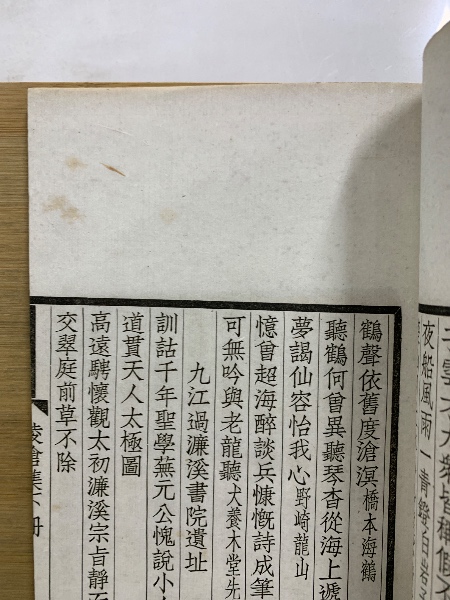 夜船風雨一青
鶴聲依舊度滄溟橋本海鶴
聽鶴何曾異聽琴杳從海上遞
夢謁仙容怡我心野崎龍山
憶曾超海醉談兵慷慨詩成筆
可無吟與老龍聽犬養木堂先
九江過濂溪書院遺址
訓詁千年聖學蕪元公愧說小
道貫天人太極圖
高遠騁懷觀太初濂溪宗旨靜
交翠庭前草不除